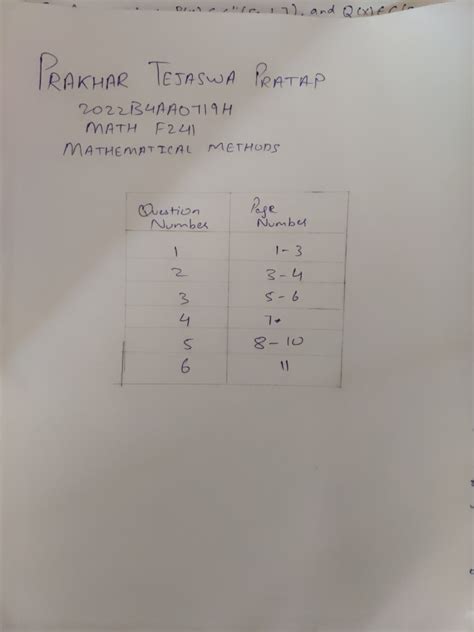 and Q(x)
PRAKHAR TEJASWA PRATAP
2022B4AA0719H
MATH F241
MATHEMATICAL METHODS
Question Number Page Number
1 1-3
2 3-4
3 5-6
4 7
5 8-10
6 11